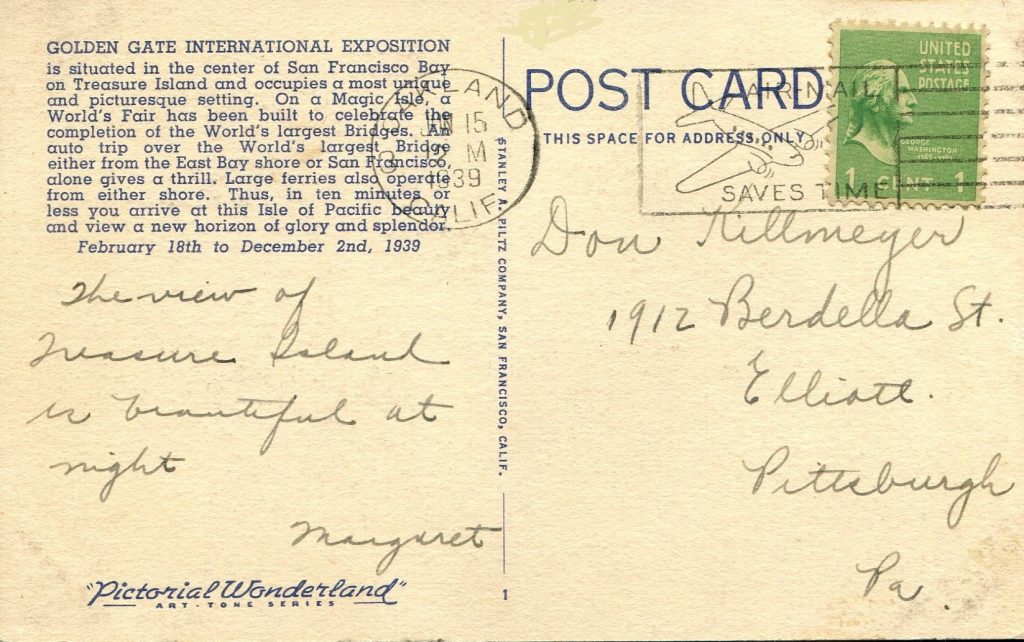 GOLDEN GATE INTERNATIONAL EXPOSITION
is situated in the center of San Francisco Bay
on Treasure Island and occupies a most unique
and picturesque setting. On a Magic Isle, a
World's Fair has been built to celebrate the
completion of the World's largest Bridges. An
auto trip over the World's largest Bridge
either from the East Bay shore or San Francisco,
alone gives a thrill. Large ferries also operate
from either shore. Thus, in ten minutes or
less you arrive at this Isle of Pacific beauty
and view a new horizon of glory and splendor.
February 18th to December 2nd, 1939
The view of
Treasure Island
is beautiful at
night
Margaret
"Pictorial Wonderland"
ART-TONE SERIES
OAKLAND
15
M
1939
CALIF.
STANLEY A. PILTZ COMPANY, SAN FRANCISCO, CALIF.
1
POST CARD
THIS SPACE FOR ADDRESS ONLY
AIR-MAIL
SAVES TIME
UNITED
STATES
POSTAGE
GEORGE
WASHINGTON
1 CENT 1
Don Killmeyer
1912 Berdella St.
Elliott.
Pittsburgh
Pa.